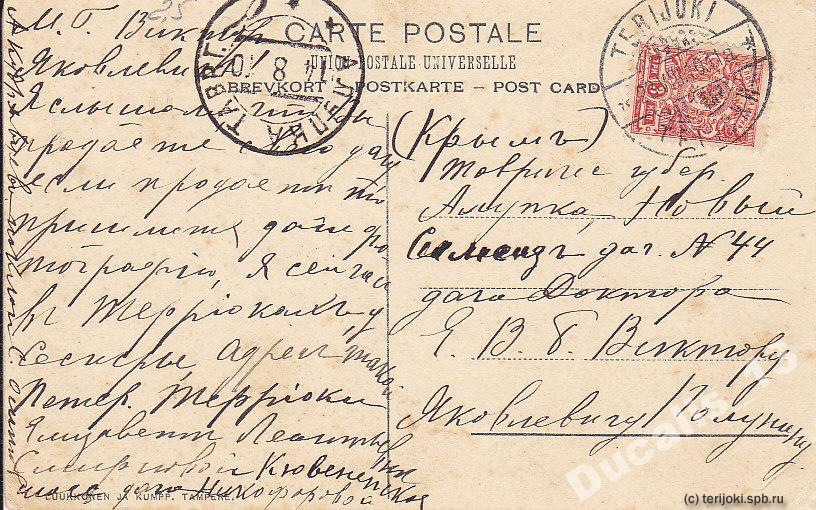 2,5
CARTE POSTALE
UNION POSTALE UNIVERSELLE
BREVKORT – POSTKARTE – POST CARD
TERIJOKI
АЛУПКА ТАВР. Г.
14 8 10
М. Г. Виктор
Яковлеви
Я слышал
продаете дачу
если продаете то
пришлите даже фо
тографію, Я сейчас
въ Терріокахъ у
Сестры, адрес такой
Петер. Терріоки
Елизавет Леонтьев
Смирновой Кювенепское
шосс дача Никофоровой
(Крымъ)
Тавриче губер.
Алупка, Новый
Симеизъ дач. N 44
дача Доктора
Е. В. Б. Виктору
Яковлевичу Полунину
LUUKKONEN JA KUMPP. TAMPERE.
Ducatis_13
(c) terijoki.spb.ru